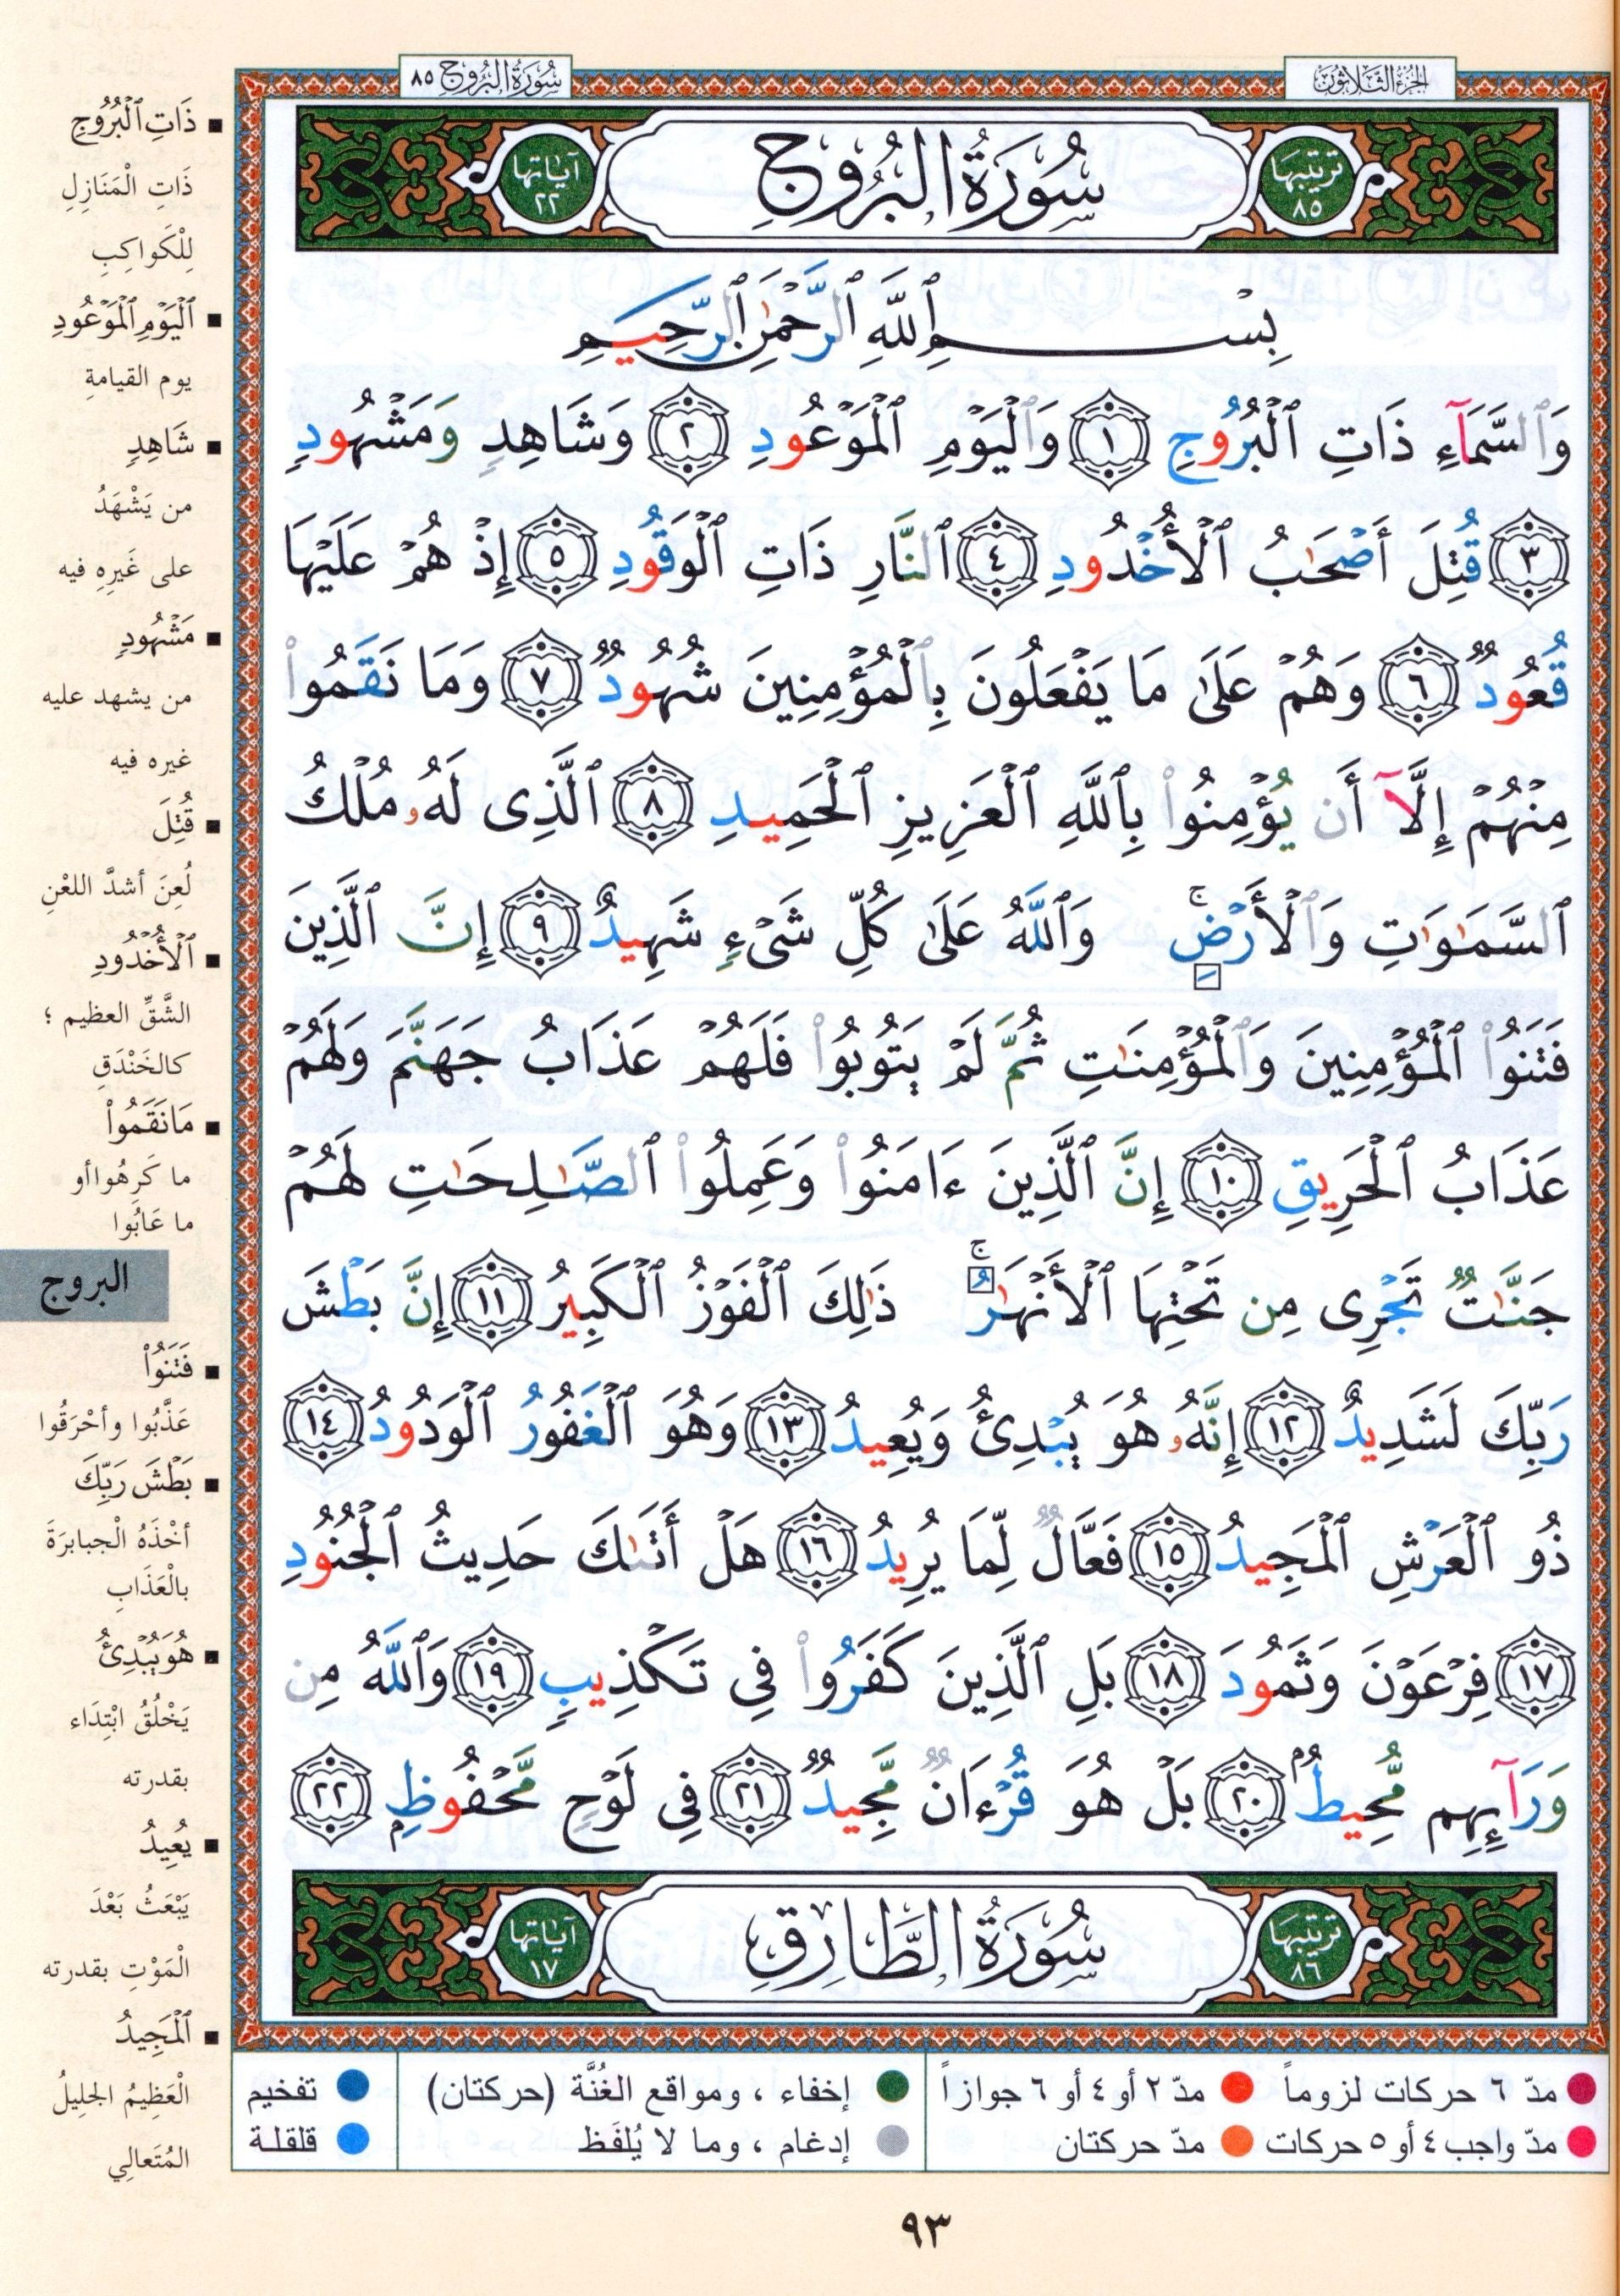 الجزء الثلاثون
سورة البروج ٨٥
ترتيبها ٨٥
سُورَةُ البُرُوجِ
آياتها ٢٢
بِسْمِ ٱللَّهِ ٱلرَّحْمَٰنِ ٱلرَّحِيمِ
وَٱلسَّمَآءِ ذَاتِ ٱلْبُرُوجِ ١ وَٱلْيَوْمِ ٱلْمَوْعُودِ ٢ وَشَاهِدٍ وَمَشْهُودٍ
٣ قُتِلَ أَصْحَٰبُ ٱلْأُخْدُودِ ٤ ٱلنَّارِ ذَاتِ ٱلْوَقُودِ ٥ إِذْ هُمْ عَلَيْهَا
قُعُودٌ ٦ وَهُمْ عَلَىٰ مَا يَفْعَلُونَ بِٱلْمُؤْمِنِينَ شُهُودٌ ٧ وَمَا نَقَمُوا۟
مِنْهُمْ إِلَّآ أَن يُؤْمِنُوا۟ بِٱللَّهِ ٱلْعَزِيزِ ٱلْحَمِيدِ ٨ ٱلَّذِى لَهُۥ مُلْكُ
ٱلسَّمَٰوَٰتِ وَٱلْأَرْضِ ۚ وَٱللَّهُ عَلَىٰ كُلِّ شَىْءٍ شَهِيدٌ ٩ إِنَّ ٱلَّذِينَ
فَتَنُوا۟ ٱلْمُؤْمِنِينَ وَٱلْمُؤْمِنَٰتِ ثُمَّ لَمْ يَتُوبُوا۟ فَلَهُمْ عَذَابُ جَهَنَّمَ وَلَهُمْ
عَذَابُ ٱلْحَرِيقِ ١٠ إِنَّ ٱلَّذِينَ ءَامَنُوا۟ وَعَمِلُوا۟ ٱلصَّٰلِحَٰتِ لَهُمْ
جَنَّٰتٌ تَجْرِى مِن تَحْتِهَا ٱلْأَنْهَٰرُ ۚ ذَٰلِكَ ٱلْفَوْزُ ٱلْكَبِيرُ ١١ إِنَّ بَطْشَ
رَبِّكَ لَشَدِيدٌ ١٢ إِنَّهُۥ هُوَ يُبْدِئُ وَيُعِيدُ ١٣ وَهُوَ ٱلْغَفُورُ ٱلْوَدُودُ ١٤
ذُو ٱلْعَرْشِ ٱلْمَجِيدُ ١٥ فَعَّالٌ لِّمَا يُرِيدُ ١٦ هَلْ أَتَىٰكَ حَدِيثُ ٱلْجُنُودِ
١٧ فِرْعَوْنَ وَثَمُودَ ١٨ بَلِ ٱلَّذِينَ كَفَرُوا۟ فِى تَكْذِيبٍ ١٩ وَٱللَّهُ مِن
وَرَآئِهِم مُّحِيطٌ ٢٠ بَلْ هُوَ قُرْءَانٌ مَّجِيدٌ ٢١ فِى لَوْحٍ مَّحْفُوظٍ ٢٢
ترتيبها ٨٦
سُورَةُ الطَّارِقِ
آياتها ١٧
ذَاتِ ٱلْبُرُوجِ
ذَاتِ الْمَنَازِلِ
لِلْكَواكِبِ
ٱلْيَوْمِ ٱلْمَوْعُودِ
يوم القيامةِ
شَاهِدٍ
من يَشْهَدُ
على غَيرِهِ فيه
مَشْهُودٍ
من يشهد عليه
غيره فيه
قُتِلَ
لُعِنَ أشدَّ اللعْنِ
ٱلْأُخْدُودِ
الشَّقِّ العظيم ؛
كالخَنْدَقِ
مَا نَقَمُوا۟
ما كَرِهُوا أو
ما عَابُوا
البروج
فَتَنُوا۟
عَذَّبُوا وأحْرَقُوا
بَطْشَ رَبِّكَ
أخْذَهُ الْجبابرَةَ
بالْعَذَابِ
هُوَ يُبْدِئُ
يَخْلُقُ ابْتِدَاء
بقدرته
يُعِيدُ
يَبْعَثُ بَعْدَ
الْمَوْتِ بقدرته
ٱلْمَجِيدُ
الْعَظِيمُ الجلِيلُ
المُتَعالِي
مدّ ٦ حركات لزوماً
مدّ ٢ أو ٤ أو ٦ جوازاً
مدّ واجب ٤ أو ٥ حركات
مدّ حركتان
إخفاء ، ومواقع الغُنَّة (حركتان)
إدغام ، وما لا يُلفَظ
تفخيم
قلقلة
٩٣